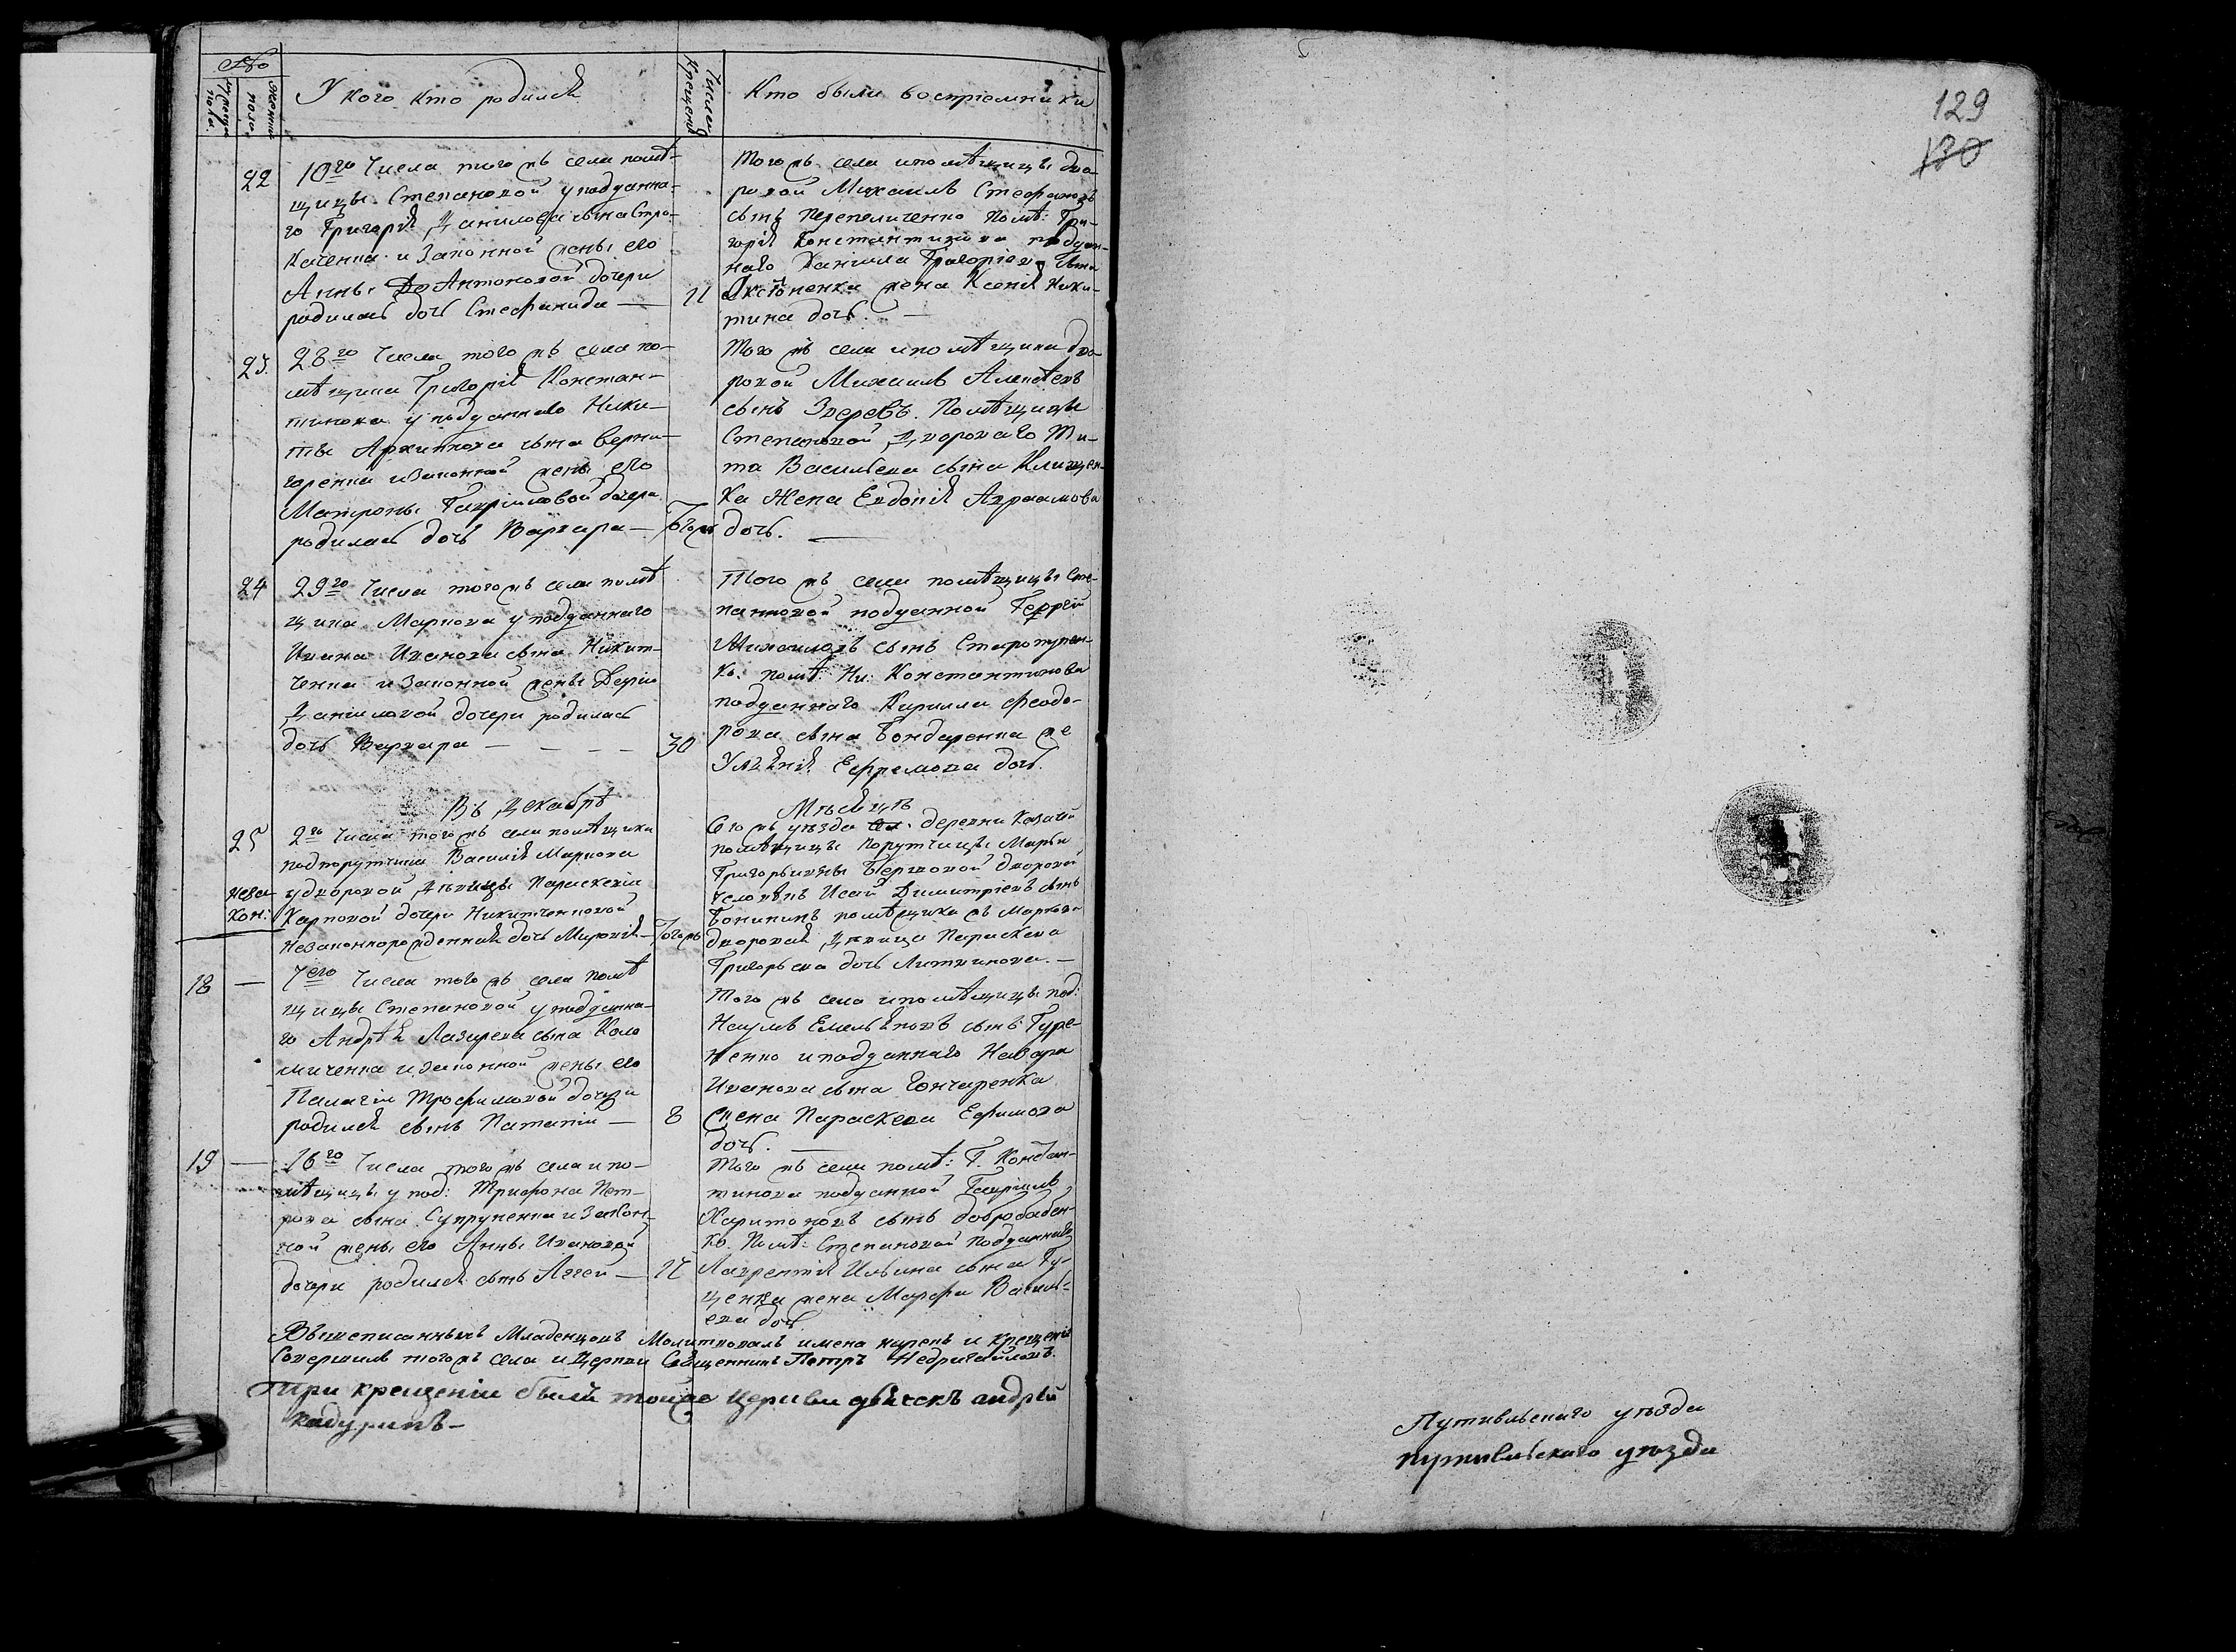 №
Мужеска пола.
Женска пола.
У кого кто родился
Число крещенія
Кто были воспріемники
22
10го Числа того жъ села помѣ-
щицы Степановой у подданна-
го Григорія Данилова сына Стро-
каченка и законной жены его
Анны Антоновой дочери
родилась дочь Стефанида —
11
Того жъ села и помѣщицы дво-
ровой Михаилъ Стефановъ
сынъ Перепеличенко помѣ: Гри-
горія Константинова поддан-
наго Данила Григоріева сына
жена Ксенія Ники-
тина дочь. —
23.
28го Числа того жъ села по-
мѣщика Григорія Констан-
тинова у подданнаго Ники-
ты Архипова сына Верни-
горенка и законной жены его
Матроны Гавріиловой дочери
родилась дочь Варвара —
Тогожъ
Того жъ села и помѣщика дво-
ровой Михаилъ Алексѣевъ
сынъ Зверевъ. Помѣщицы
Степановой двороваго Ти-
та Васильева сына Клищен-
ка Жена Евдокія Авраамова
дочь. —
24
29го Числа того жъ села помѣ
щика Маркова у подданнаго
Ивана Иванова сына Никит-
ченка и законной жены Дарьи
Даниловой дочери родилась
дочь Варвара —
30
Того жъ села помѣщицы Сте-
пановой подданной Георгій
Михаиловъ сынъ
ко. помѣ: Ни: Константинова
подданнаго Кирилла Феодо-
рова сына Бондаренка же
Уліянія Ефремова дочь.
Въ Декабрѣ
Мѣсяцѣ
25
незакон:
2го Числа того жъ села помѣщика
подпорутчика Василія Маркова
у дворовой дѣвицы Параскевіи
Карповой дочери Никитченковой
незаконнорожденная дочь —
Тогожъ
Сего жъ уѣзда деревни Казачей
помѣщицы порутчицы Марьи
Григорьевны дворовой
человѣкъ Исай Димитріевъ сынъ
помѣщика жъ Маркова
дворовая дѣвица Параскева
Григорьева дочь Литвинова. —
18 —
7его Числа того жъ села помѣ
щицы Степановой у подданна-
го Андрѣя Лазарева сына Коло
миченка и законной жены его
Пелагіи Трофимовой дочери
родился сынъ Патапій —
8
Того жъ села и помѣщицы под:
Наумъ Емельяновъ сынъ Гуре-
ненко и подданнаго Назара
Иванова сына Гончаренка
жена Параскева Ефимова
дочь. —
19 —
16го Числа того жъ села и по-
мѣщицы у под: Трифона Пет-
рова сына Супруненка и закон-
ной жены его Анны Ивановой
дочери родился сынъ Аггей —
17
Того жъ села помѣ: Г. Констан-
тинова подданной Гавріилъ
Харитоновъ сынъ Добробабен-
ко. Помѣ: Степановой подданнаго
Лаврентія Ильина сына Гу-
ценка жена Марфа Василь-
ева дочь.
Вышеписанныхъ Младенцовъ Молитвовалъ имена нарекъ и крещеніе
Совершилъ того жъ села и Церкви Священникъ Петръ Недригайловъ.
При крещеніи были тойже церкви дьячекъ андрѣй
Кадуринъ —
129
130
Путивльскаго уѣзда
путивльскаго уѣзда